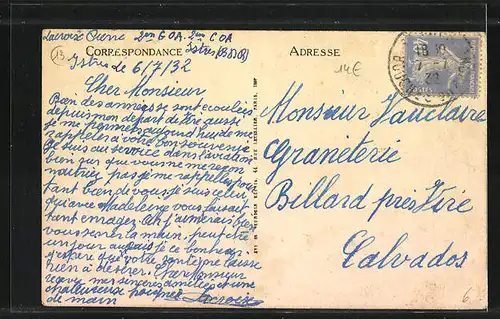 Lacroix Pierre 2me G.O.A. 2me C O A
Istres (B.D.R)
CORRESPONDANCE
ADRESSE
13
14€
Istres le 6/7/32
Cher Monsieur
Bien des années se sont écoulées
depuis mon départ de Vire aussi
je me permets aujourd'hui de me
rappeler à votre bon souvenir
Je suis au service dans l'aviation
bien sûr que vous me recon
naîtrez pas je me rappelle pour
tant bien de vous je suis celui
qu'avec Madeleine vous faisait
tant enrager. Ah j'aimerais bien
vous serrer la main, peut être
un jour aurais je ce bonheur.
J'espère que votre santé ne laisse
rien à désirer. Cher Monsieur
recevez mes sincères amitiés et une
chaleureuse poignée
de main Lacroix
Monsieur Vauclaire
Graneterie
Billard près Vire
Calvados
6